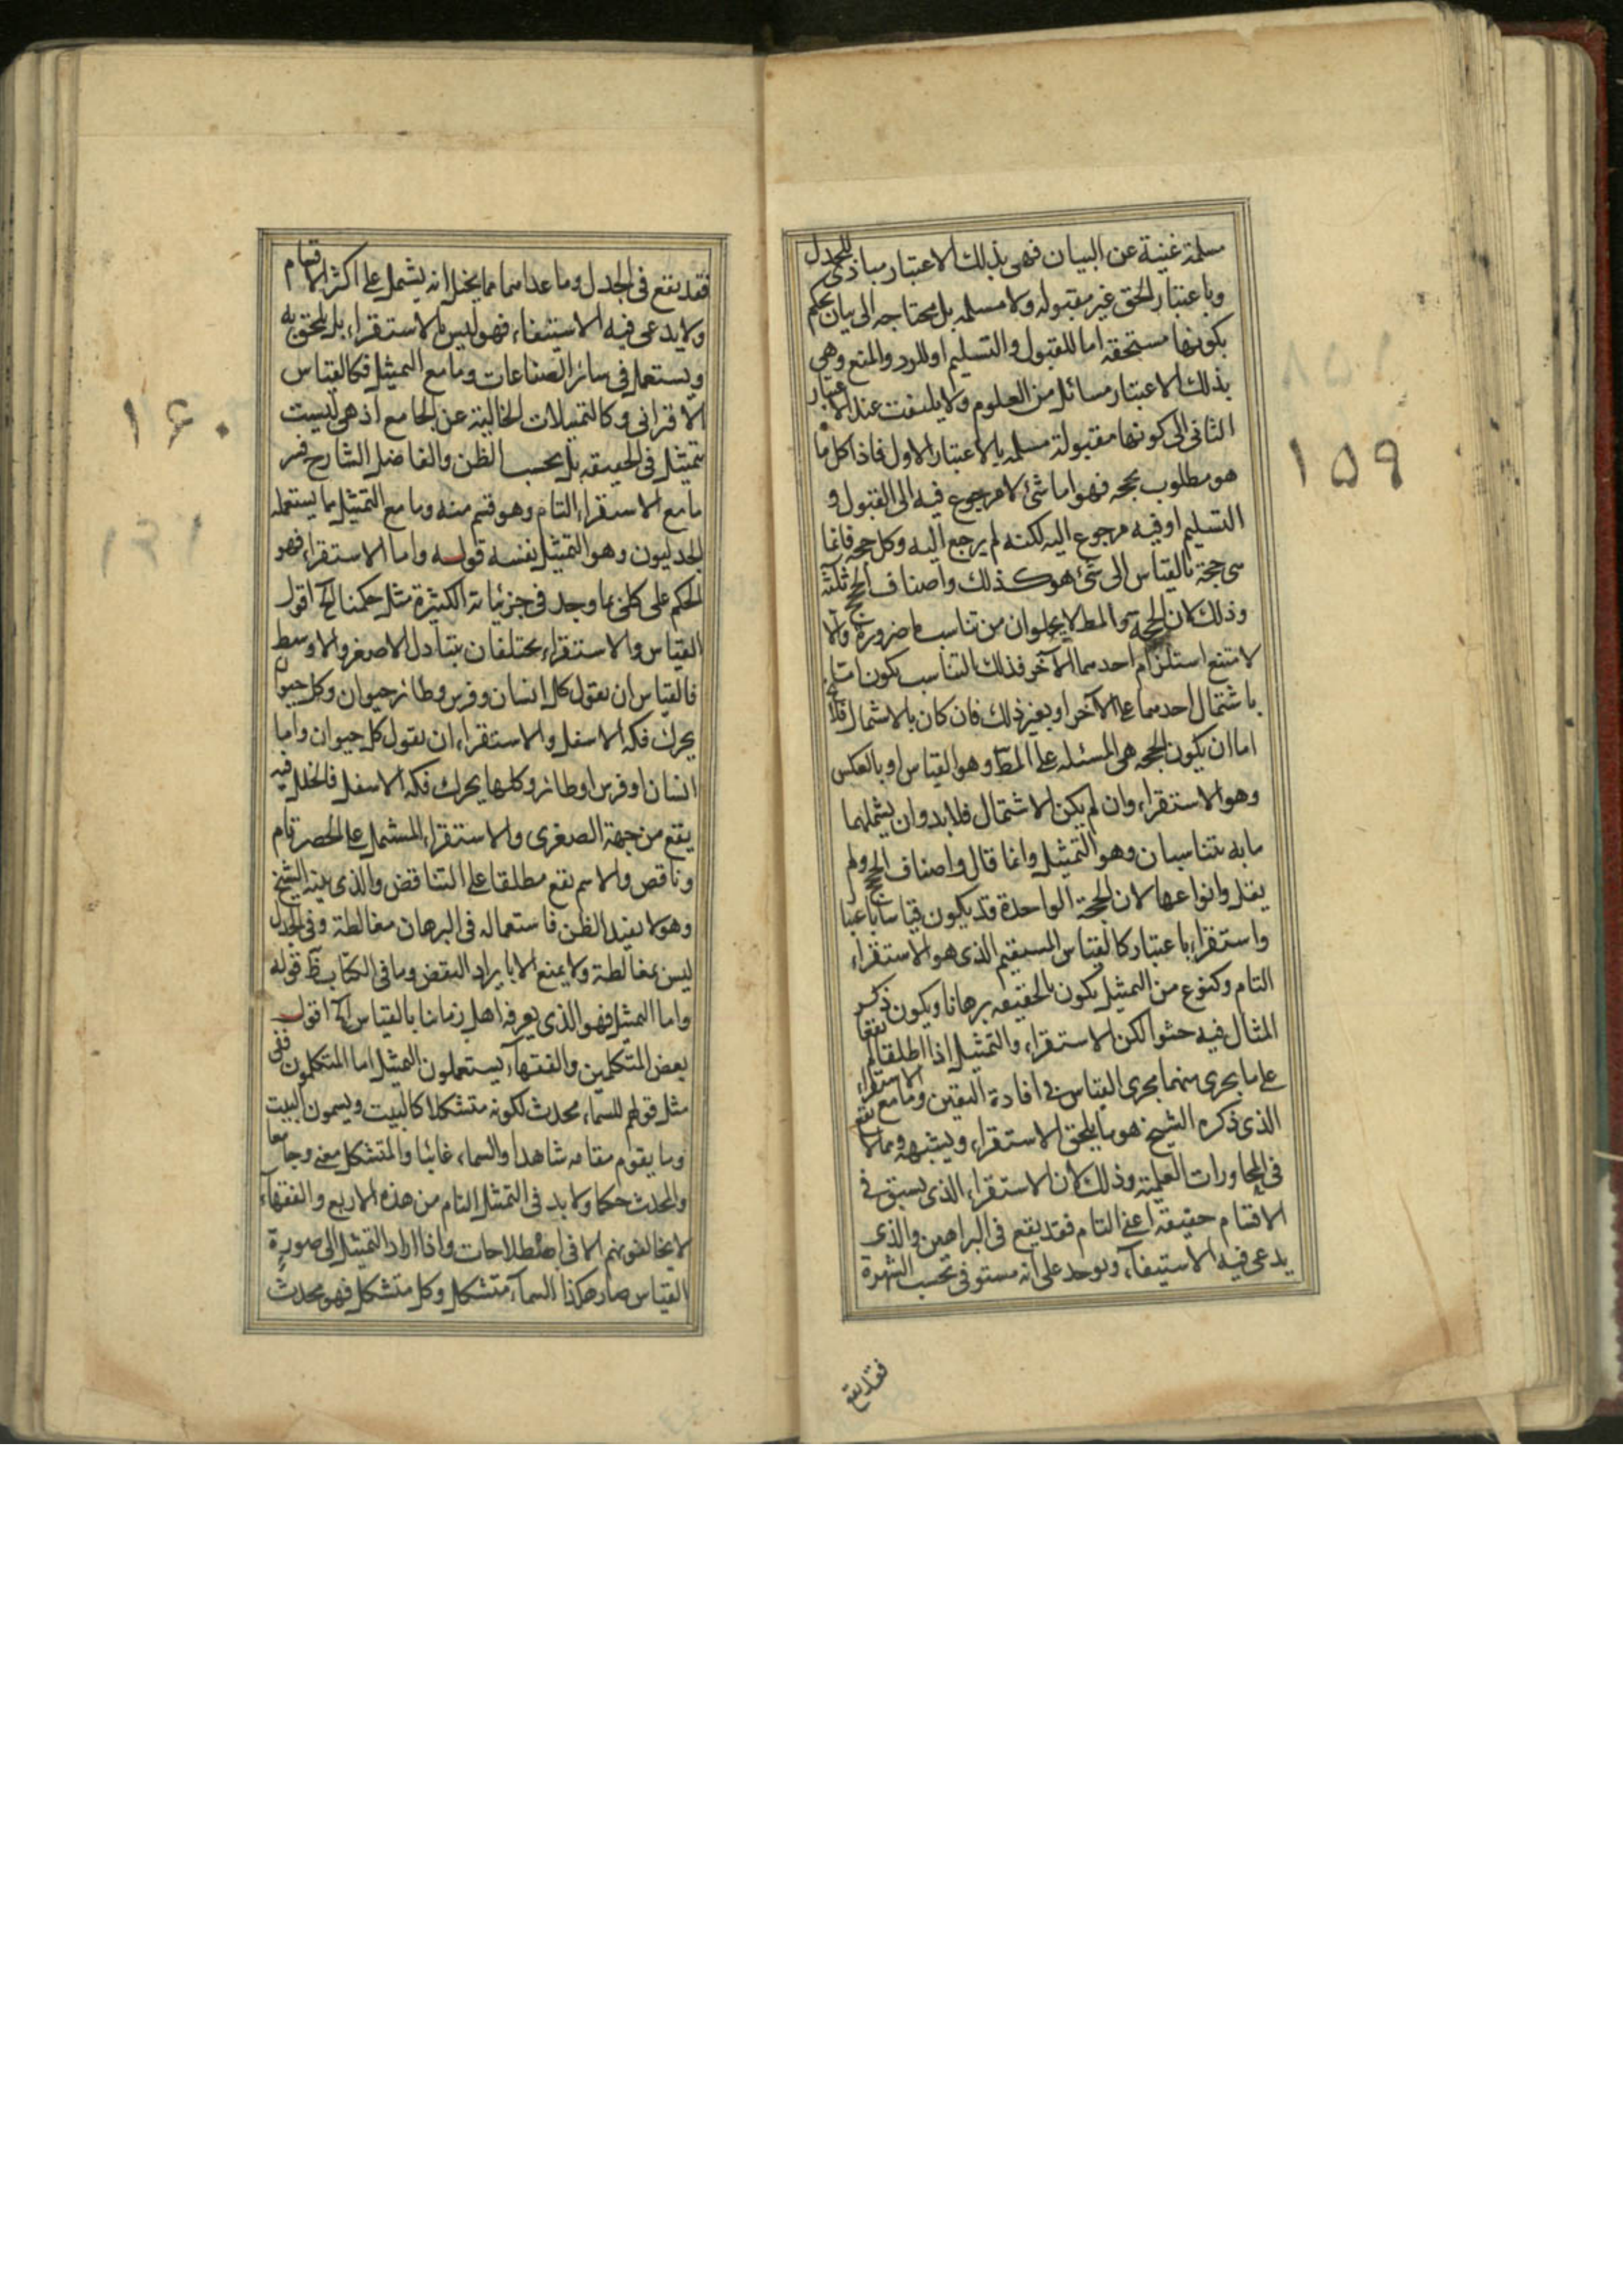 مسلمة غنية عن البيان فهى بذلك الاعتبار مبادى للجدل
وباعتبار الحق غير مقبوله ولا مسلمه بل محتاجه الى بيان يحكم
بكونها مستحقه اما للقبول والتسليم او للرد والمنع وهى
بذلك الاعتبار مسائل من العلوم ولا يلتفت عند الاعتبار
الثانى الى كونها مقبولة مسلمه بالاعتبار الاول فاذا كل ما
هو مطلوب بحجه فهو اما شئ لا مرجوع فيه الى القبول و
التسليم او فيه مرجوع اليه لكنه لم يرجع اليه وكل حجه فانما
هى حجة بالقياس الى شئ هو كذلك واصناف الحجج ثلثة
وذلك لان الحجة والمط لا يخلوان من تناسب ما ضرورة والا
لامتنع استلزام احدهما الآخر فذلك التناسب يكون اما
باشتمال احدهما على الآخر او بغير ذلك فان كان بالاشتمال فلا يخ
اما ان يكون الحجه هى المشتمله على المط وهو القياس او بالعكس
وهو الاستقراء وان لم يكن الاشتمال فلابد وان يشملهما
ما به يتناسبان وهو التمثيل وانما قال واصناف الحجج ولم
يقل وانواعها لان الحجة الواحدة قد يكون قياسا باعتبار
واستقراء باعتبار كالقياس المسقيم الذى هو الاستقراء
التام وكنوع من التمثيل يكون بالحقيقه برهانا ويكون ذكر
المثال فيه حشوا لكن الاستقراء والتمثيل اذا اطلقا لم يقعا
على ما يجرى منهما مجرى القياس فى افادة اليقين وما مع الاستقراء
الذى ذكره الشيخ هو ما يلحق الاستقراء ويشبهه ومما لا يقع
فى المحاورات العلمية وذلك لان الاستقراء الذى يستوفى
الاقسام حقيقه اعنى التام فقد يقع فى البراهين والذى
يدعى فيه الاستيفآء ويوخذ على انه مستوفى بحسب الشهرة
فقد يقع
159
فقد يقع فى الجدل وما عداهما مما يخيل انه يشمل على اكثر الاقسام
ولا يدعى فيه الاستيفاء فهو ليس بالاستقراء بل يلحق به
ويستعمل فى سائر الصناعات وما مع التمثيل فكالقياس
الاقرانى وكالتمثيلات الخالية عن الجامع اذ هى ليست
بتمثيل فى الحقيقه بل بحسب الظن والفاضل الشارح فسر
ما مع الاستقراء بالتام وهو قسم منه وما مع التمثيل بما يستعمله
الجدليون وهو التمثيل نفسه قوله واما الاستقراء فهو
الحكم على كلى بما وجد فى جزئياته الكثيرة مثل حكمنا الخ اقول
القياس والاستقراء يختلفان بتبادل الاصغر والاوسط
فالقياس ان يقول كل انسان وفرس وطائر حيوان وكل حيوان
يحرك فكه الاسفل والاستقراء ان يقول كل حيوان واما
انسان او فرس او طائر وكلها يحرك فكه الاسفل فالخلل فيه
يقع من جهة الصغرى والاستقراء المشتمل على الحصر تام
وناقص والاسم يقع مطلقا على التناقض والذى بينه الشيخ
وهو لا يفيد الظن فاستعماله فى البرهان مغالطة وفى الجدل
ليس بمغالطة ولا يمنع الا بايراد النقض وما فى الكتاب ظ قوله
واما التمثيل فهو الذى يعرفه اهل زماننا بالقياس الخ اقول
بعض المتكلمين والفقهآء يستعملون التمثيل اما المتكلمون ففى
مثل قولهم للسماء محدث لكونه متشكلا كالبيت ويسمون البيت
وما يقوم مقامه شاهدا والسماء غائبا والمتشكل معنى وجامعا
والمحدث حكما ولابد فى التمثيل التام من هذه الاربع والفقهآء
لا يخالفونهم الا فى اصطلاحات واذا اراد التمثيل الى صورة
القياس صار هكذا السمآء متشكل وكل متشكل فهو محدث
۱۶۰